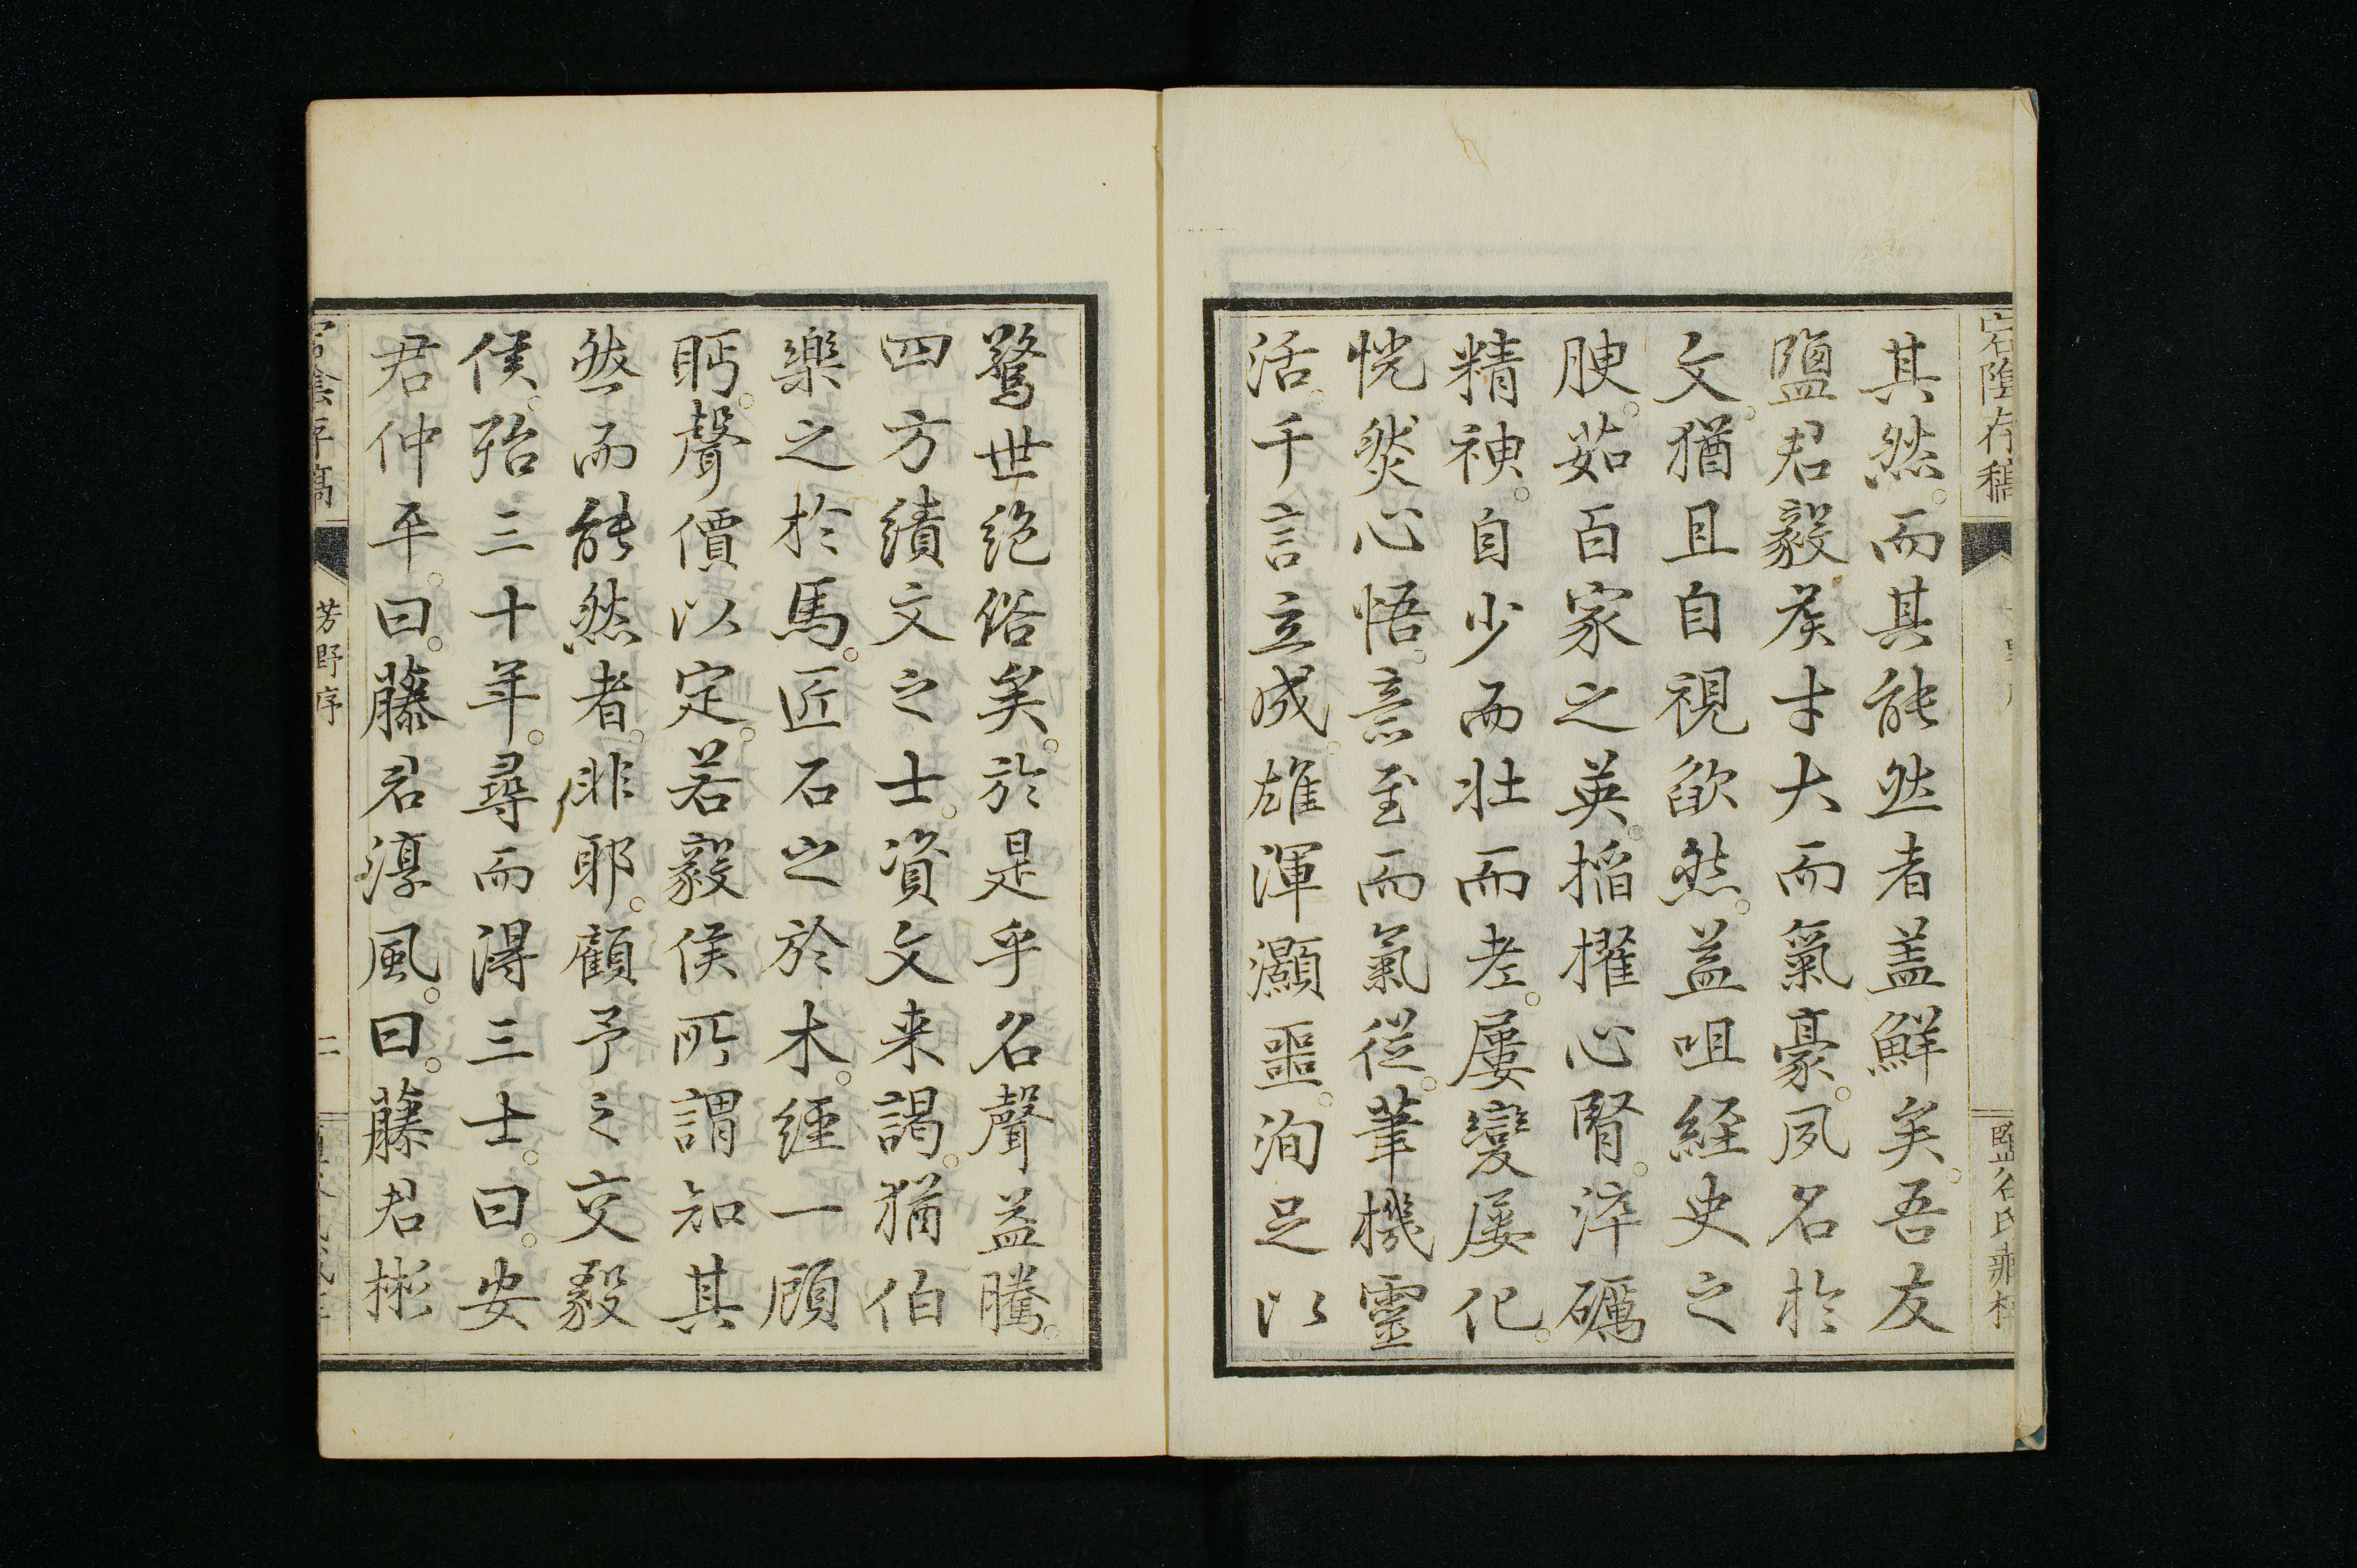 宕陰存稿
鹽谷氏
其然。而其能然者盖鮮矣。吾友
鹽君毅侯才大而氣豪。夙名於
文。猶且自視欿然。益咀經史之
腴。茹百家之英。搯擢心腎。淬礪
精神。自少而壯而老。屢變屢化。
恍然心悟。意至而氣從。筆機靈
活。千言立成。雄渾灝噩。洵足以
驚世絶俗矣。於是乎名聲益騰。
四方績文之士。資文来謁。猶伯
樂之於馬。匠石之於木。經一顧
眄。聲價以定。若毅侯所謂知其
然而能然者。非耶。顧予之交毅
侯。殆三十年。尋而得三士。曰。安
君仲平。曰。藤君淳風。曰。藤君彬
宕陰存稿
芳野序
二